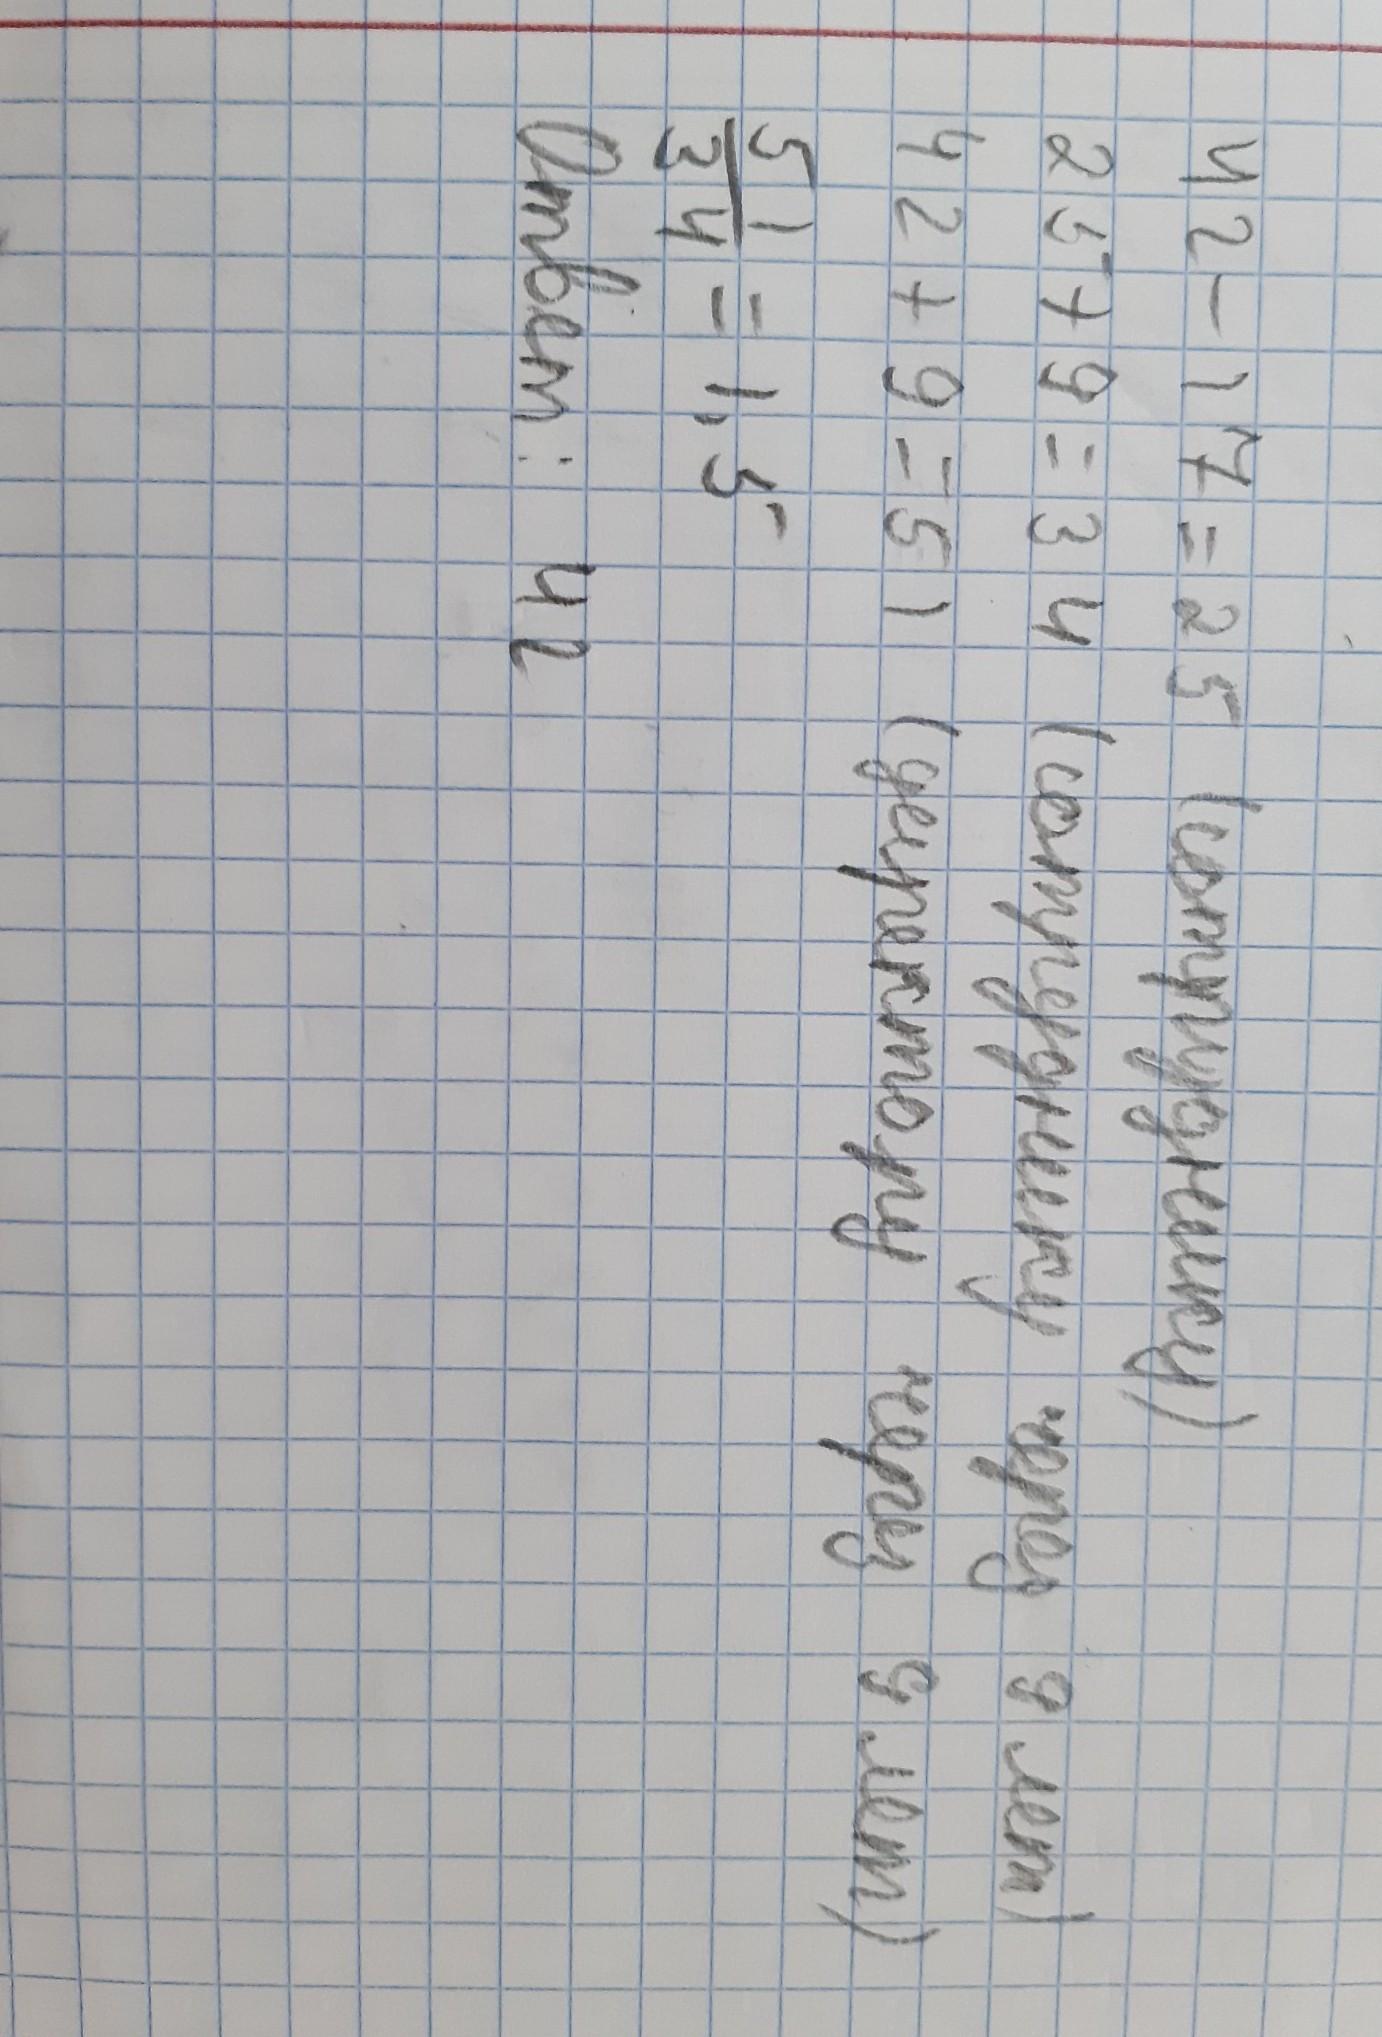 42 - 17 = 25 (сотруднику)
25 + 9 = 34 (сотруднику через 9 лет)
42 + 9 = 51 (директору через 9 лет)
51/34 = 1,5
Ответ: 42